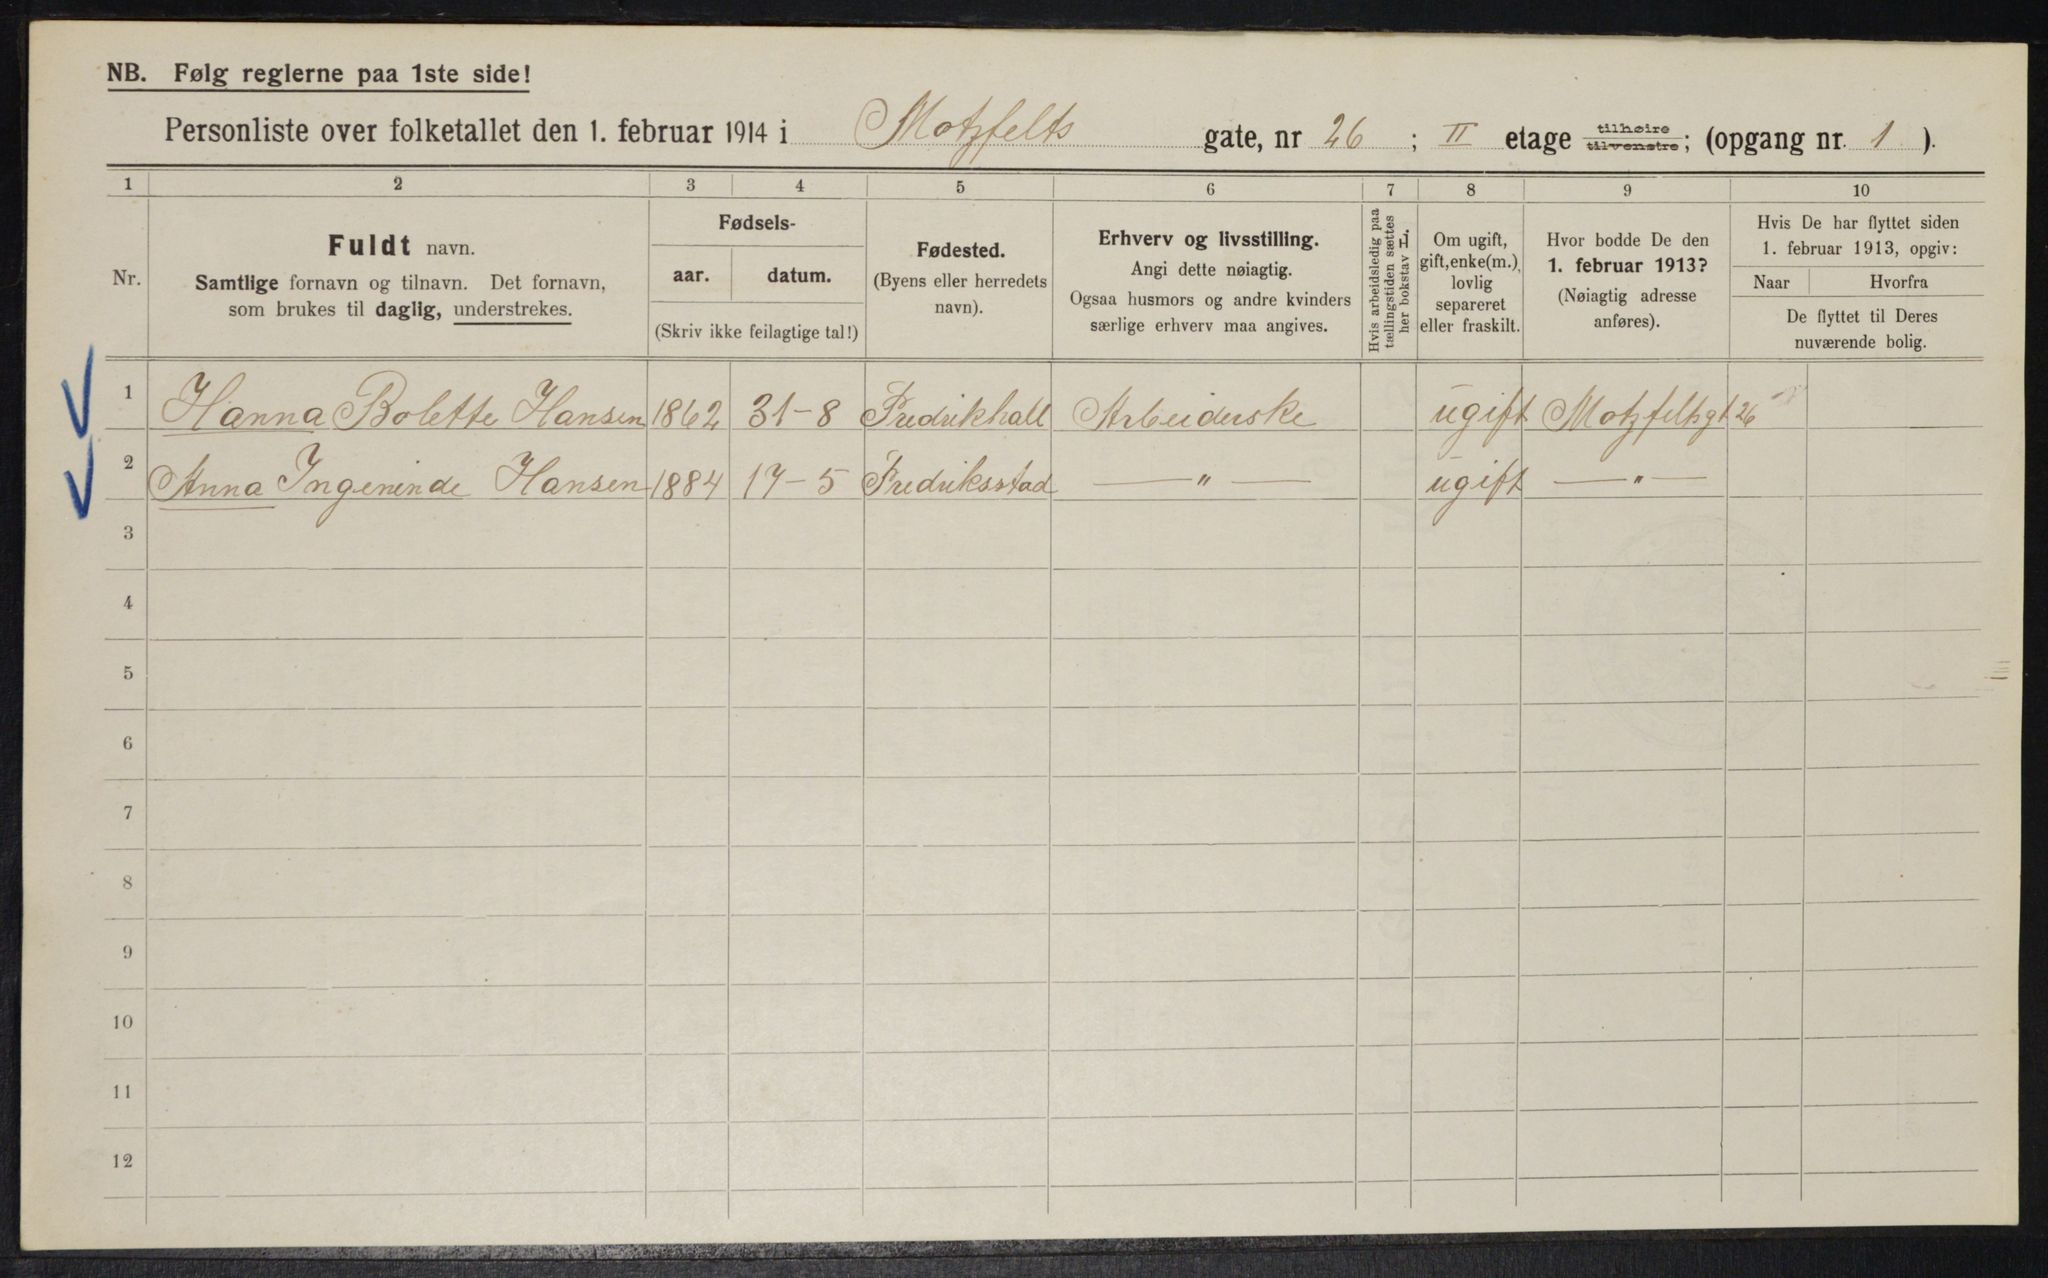 NB. Følg reglerne paa 1ste side!
Personliste over folketallet den 1. februar 1914 i Motzfelts gate, nr 26 ; II etage tilhøire tilvenstre; (opgang nr. 1 ).
1 2 3 4 5 6 7 8 9 10
Nr.
Fuldt navn.
Samtlige fornavn og tilnavn. Det fornavn,
som brukes til daglig, understrekes.
Fødsels-
aar. datum.
(Skriv ikke feilagtige tal!)
Fødested.
(Byens eller herredets
navn).
Erhverv og livsstilling.
Angi dette nøiagtig.
Ogsaa husmors og andre kvinders
særlige erhverv maa angives.
Hvis arbeidsledig paa
tællingstiden sættes
her bokstav L.
Om ugift,
gift, enke(m.),
lovlig
separeret
eller fraskilt.
Hvor bodde De den
1. februar 1913?
(Nøiagtig adresse
anføres).
Hvis De har flyttet siden
1. februar 1913, opgiv:
Naar Hvorfra
De flyttet til Deres
nuværende bolig.
1 Hanna Bolette Hansen 1862 31-8 Fredrikhall Arbeiderske ugift Motzfeltsgt 26
2 Anna Ingerinde Hansen 1884 17-5 Fredriksstad — " — ugift — " —
3
4
5
6
7
8
9
10
11
12